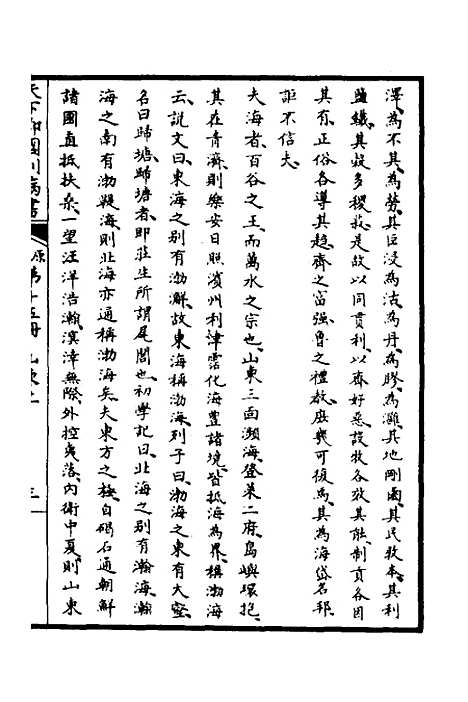 澤、為不其、為勞、其巨浸為沽、為丹、為膠、為濰、其地剛鹵、其民敦本、其利
鹽鐵、其㝡多稷、莪是故以同貫利、以齊好惡、設牧各效其能、制貢各因
其有、正俗各導其趨、齊之富强、魯之禮教、庶幾可復焉、其為海岱名邦、
詎不信夫、
夫海者、百谷之王、而萬水之宗也、山東三面瀕海、登萊二府、島嶼環抱、
其在青濟、則樂安日照濱州利津霑化海豐諸境、皆抵海為界、稱渤海
云、說文曰、東海之别有渤澥、故東海稱渤海、列子曰、渤海之東有大壑、
名曰歸塘、歸塘者、即莊生所謂尾閭也、初學記曰、北海之别有瀚海、瀚
海之南有渤鞮海、則北海亦通稱渤海矣、夫東方之極、自碣石通朝鮮
諸國、直抵扶桑、一望汪洋浩瀚、溟涬無際、外控夷落、内衛中夏、則山東
天下郡國利病書
原第十五册 山東上
三